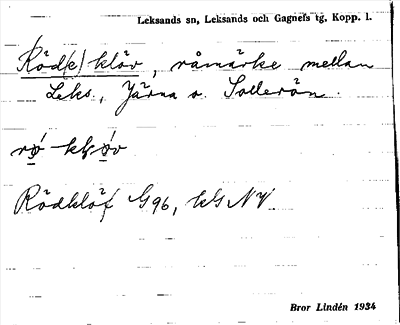 Leksands sn, Leksands och Gagnefs tg, Kopp. l.
Röd(e) klöv, råmärke mellan
Leks., Järna o. Sollerön.
Rödklöf G96, kG NV.
Bror Lindén 1934